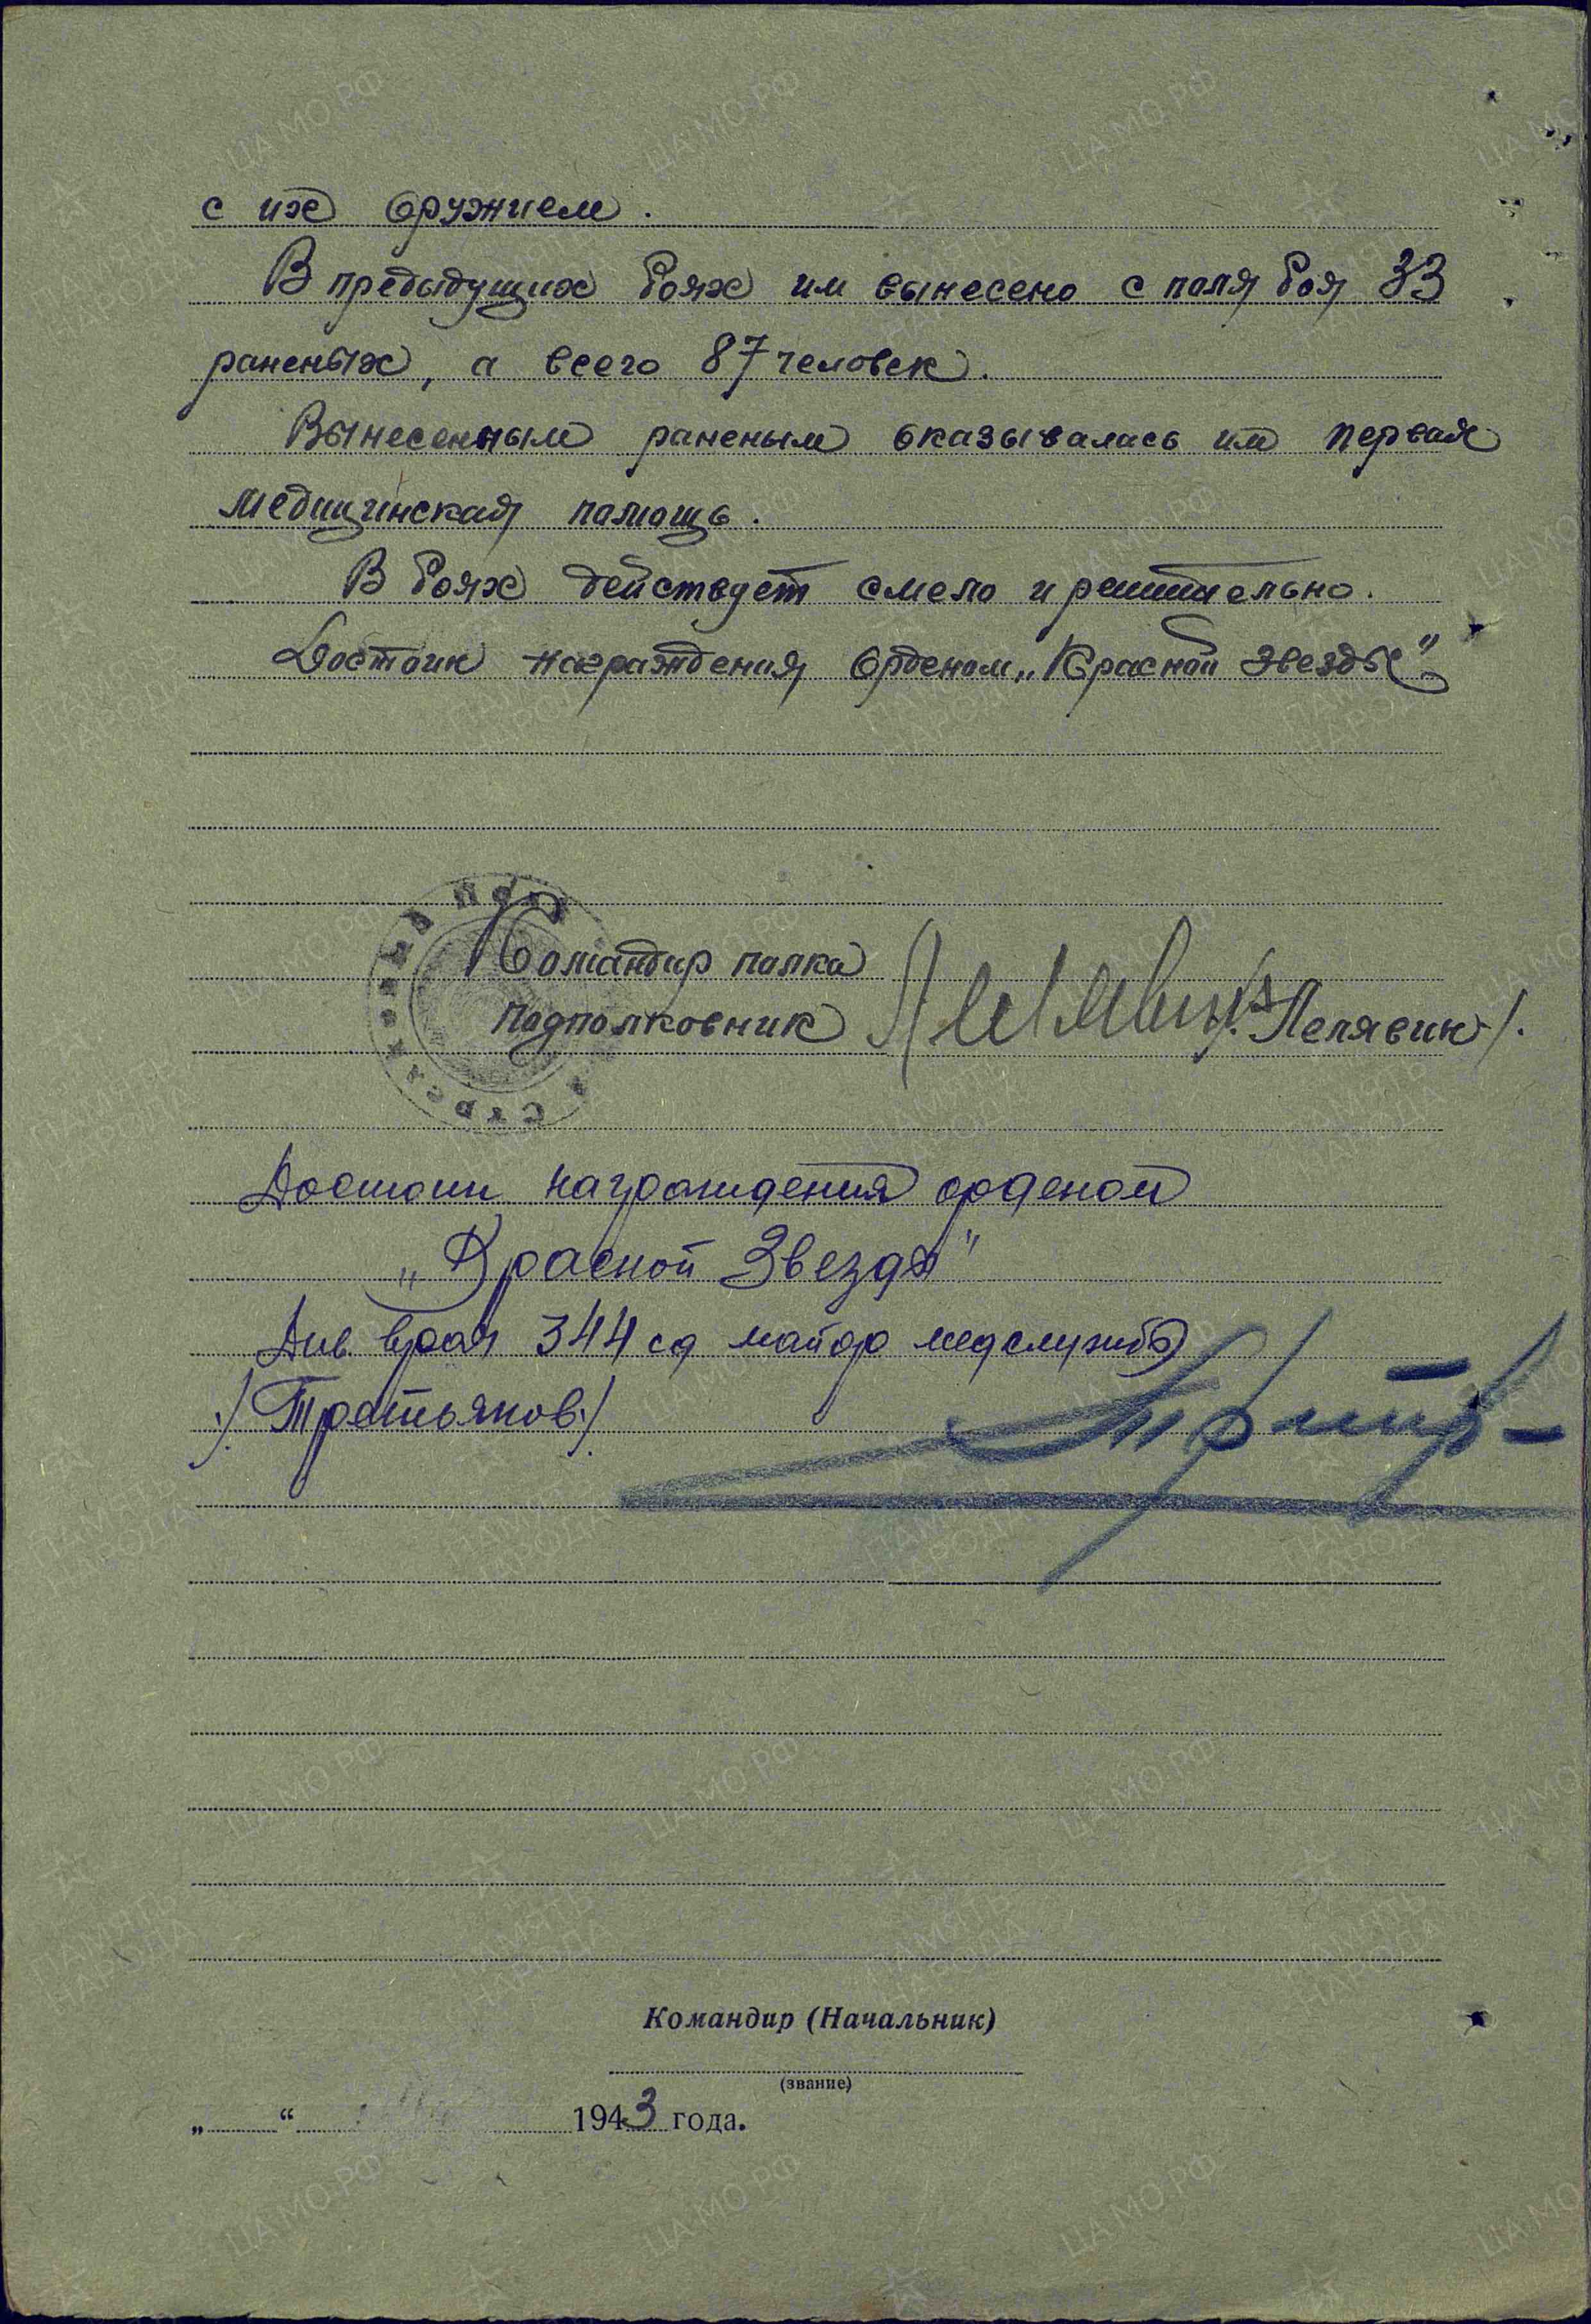 с их оружием.
В предыдущих боях им вынесено с поля боя 33
раненых, а всего 87 человек.
Вынесенным раненым оказывалась им первая
медицинская помощь.
В боях действует смело и решительно.
Достоин награждения Орденом „Красной Звезды“.
Командир полка
подполковник /Пелявин/.
Достоин награждения орденом
„Красной Звезды“
Див. врач 344 сд майор медслужбы
/Третьяков/
Командир (Начальник)
(звание)
„ “ 1943 года.
ЦА МО РФ
ПАМЯТЬ НАРОДА